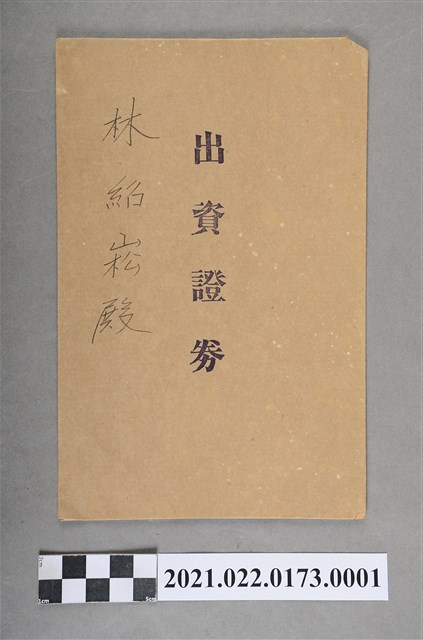 出資證券
林紹崧殿
2021.022.0173.0001
1cm
5cm